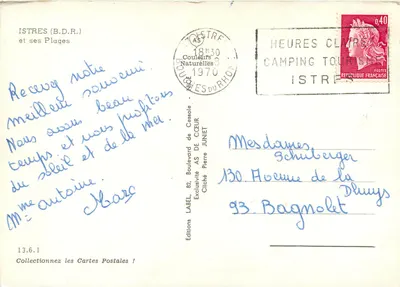 ISTRES (B.D.R.)
et ses Plages
Recevez notre
meilleur souvenir.
Nous avons beau
temps et nous profitons
du soleil et de la mer.
Mme Antoine. Marc
13.6.1
Collectionnez les Cartes Postales !
Couleurs
Naturelles
Editions LABEL, 81, Boulevard de Cessole -
Exclusivité AS DE CŒUR
Cliché Pierre JUINET
ISTRES
18H30
1970
BOUCHES DU RHÔNE
HEURES CLAIRES
CAMPING TOURISME
ISTRES
0,40
REPUBLIQUE FRANÇAISE
Mesdames
Schuberger
130 Avenue de la
Dhuys
93. Bagnolet